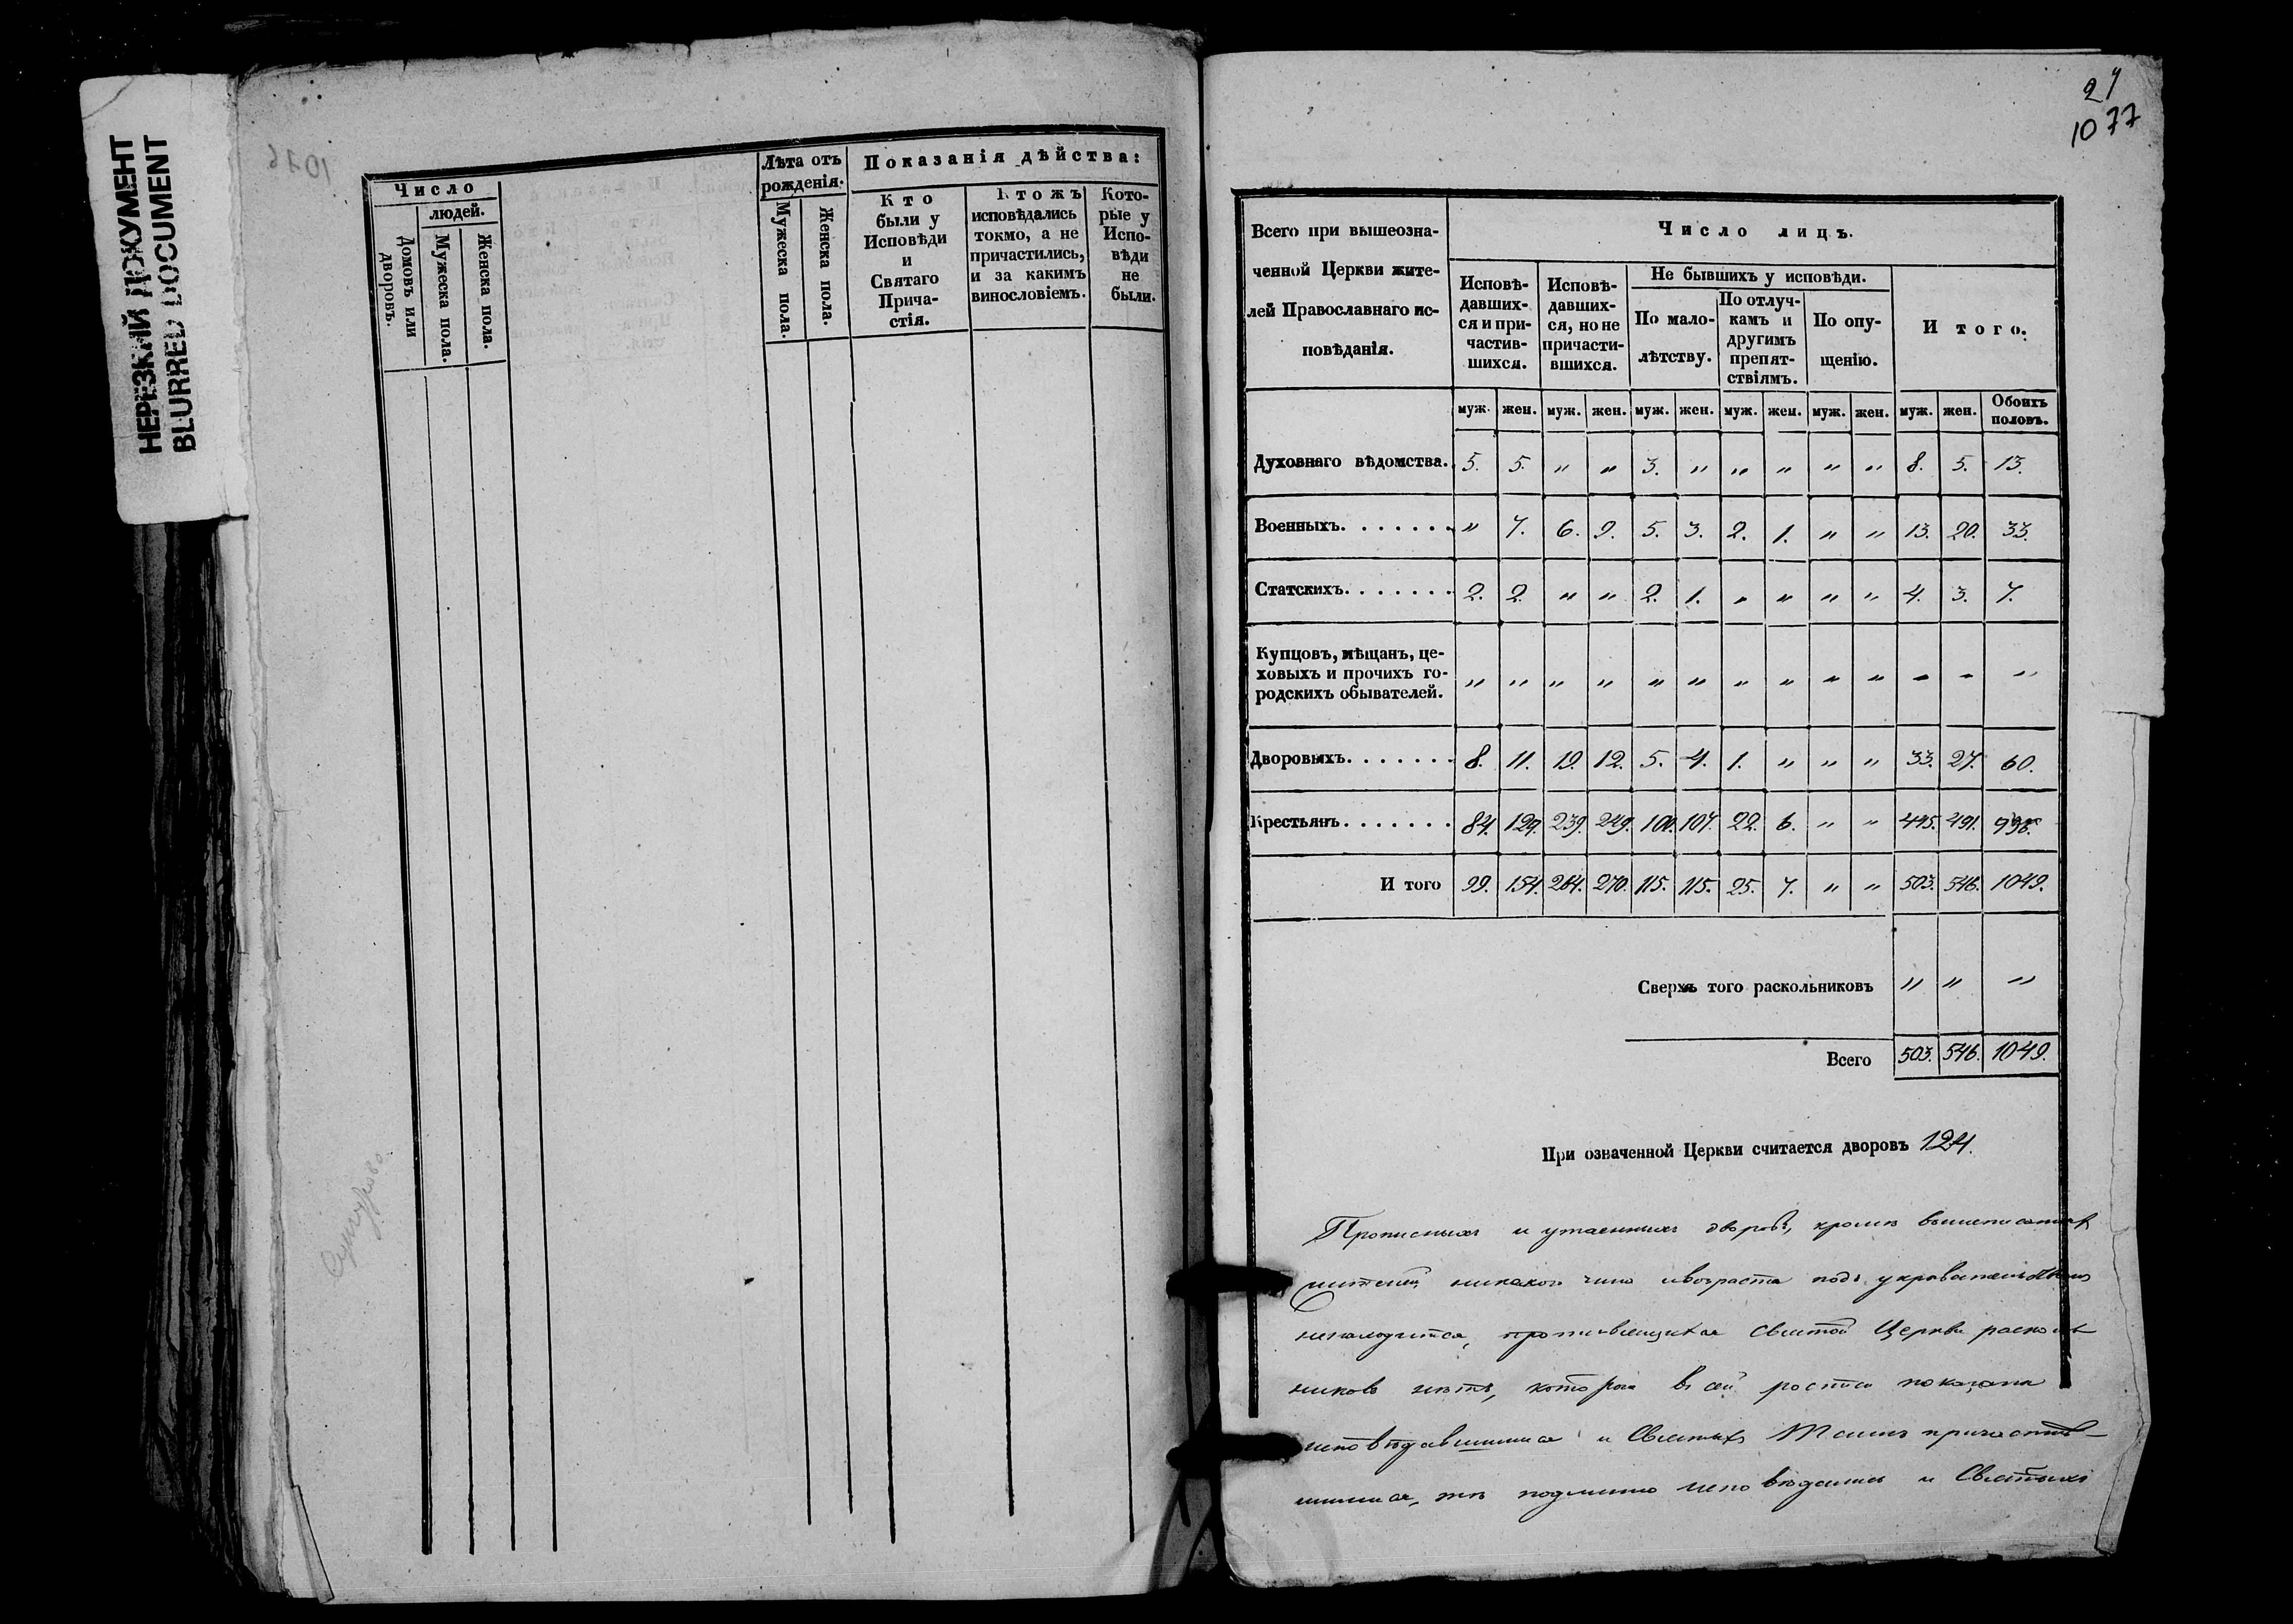 НЕРЕЗКИЙ ДОКУМЕНТ
BLURRED DOCUMENT
1076
Число
людей.
Домовъ или дворовъ.
Мужеска пола.
Женска пола.
Лѣта отъ рожденія.
Мужеска пола.
Женска пола.
Показанія дѣйства:
Кто
были у
Исповѣди
и
Святаго
Прича-
стія.
Ктожъ
исповѣдались
токмо, а не
причастились,
и за какимъ
винословіемъ.
Кото-
рые у
Испо-
вѣди
не
были.
Сунгурово
1077
Всего при вышеозна-
ченной Церкви жите-
лей Православнаго ис-
повѣданія.
Число лицъ.
Исповѣ-
давших-
ся и при-
частив-
шихся.
Исповѣ-
давших-
ся, но не
причасти-
вшихся.
Не бывшихъ у исповѣди.
По мало-
лѣтству.
По отлуч-
камъ и
другимъ
препят-
ствіямъ.
По опу-
щенію.
И того:
муж. жен. муж. жен. муж. жен. муж. жен. муж. жен. муж. жен. Обоихъ половъ.
Духовнаго вѣдомства. 5. 5. " " 3. " " " " " 8. 5. 13.
Военныхъ. . . . . . . " 7. 6. 9. 5. 3. 2. 1. " " 13. 20. 33.
Статскихъ. . . . . . . 2. 2. " " 2. 1. " " " " 4. 3. 7.
Купцовъ, мѣщанъ, це-
ховыхъ и прочихъ го-
родскихъ обывателей. " " " " " " " " " " " " "
Дворовыхъ. . . . . . . 8. 11. 19. 12. 5. 4. 1. " " " 33. 27. 60.
Крестьянъ. . . . . . . 84. 129. 239. 249. 100. 107. 22. 6. " " 445. 491. 936.
И того 99. 154. 264. 270. 115. 115. 25. 7. " " 503. 546. 1049.
Сверхъ того раскольниковъ " " "
Всего 503. 546. 1049.
При означенной Церкви считается дворовъ 124.
Прописныхъ и утаенныхъ дворовъ, кромѣ вышеписанныхъ
жителей никакого чина и возраста подъ укрывательствомъ
не находится, противляющихся Святой Церкви расколь
никовъ нѣтъ, которые въ сей росписи показаны
исповѣдавшимися и Святыхъ Таинъ причастив-
шимися, тѣ подлинно исповѣдались и Святыхъ